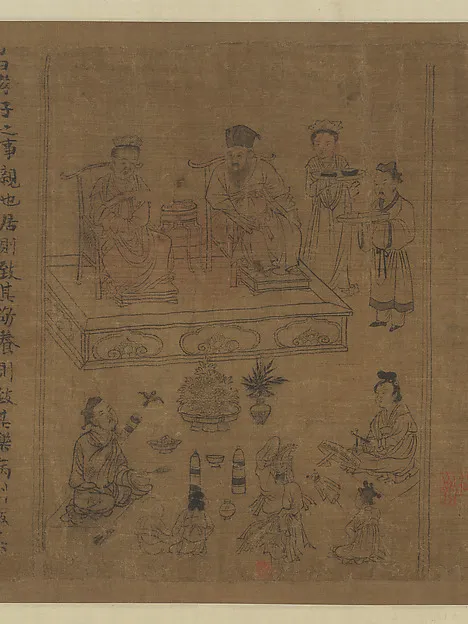 曰孝子之事親也居則致其敬養則致其樂病則致